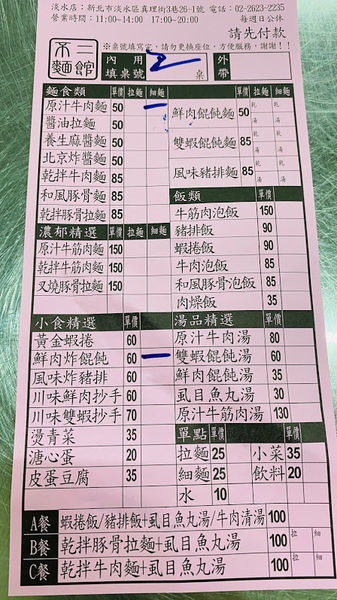 淡水店：新北市淡水區真理街3巷26-1號 電話：02-2623-2235
營業時間：11:00~14:00 17:00~20:00 每週日公休
請先付款
※桌號填寫完，請勿更換座位，方便服務，謝謝!!
不二麵館
內用填桌號 2 桌 外帶
麵食類 單價 拉麵 細麵
原汁牛肉麵 50
醬油拉麵 50
養生麻醬麵 50
北京炸醬麵 50
乾拌牛肉麵 85
和風豚骨麵 85
乾拌豚骨拉麵 85
鮮肉餛飩麵 50 乾 湯
雙蝦餛飩麵 85 乾 湯
風味豬排麵 85 乾 湯
濃郁精選 單價 拉麵 細麵
原汁牛筋肉麵 150
乾拌牛筋肉麵 150
叉燒豚骨拉麵 150
飯類 單價
牛筋肉泡飯 150
豬排飯 90
蝦捲飯 90
牛肉泡飯 85
和風豚骨泡飯 85
肉燥飯 35
小食精選 單價
黃金蝦捲 60
鮮肉炸餛飩 60
風味炸豬排 60
川味鮮肉抄手 60
川味雙蝦抄手 70
燙青菜 35
溏心蛋 20
皮蛋豆腐 35
湯品精選 單價
原汁牛肉湯 80
雙蝦餛飩湯 60
鮮肉餛飩湯 35
虱目魚丸湯 30
原汁牛筋肉湯 130
單點 單價
拉麵 25 小菜 35
細麵 25 飲料 20
水 10
A餐 蝦捲飯/豬排飯+虱目魚丸湯/牛肉清湯 100
B餐 乾拌豚骨拉麵+虱目魚丸湯 100 拉 細
C餐 乾拌牛肉麵+虱目魚丸湯 100 拉 細